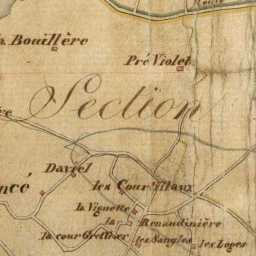 Bouillère
Pré Violet
Section
re
Daviel
les Cour
ncé
la Vignette
la Renaudinière
la cour Grellier
les Sangles
les Loges